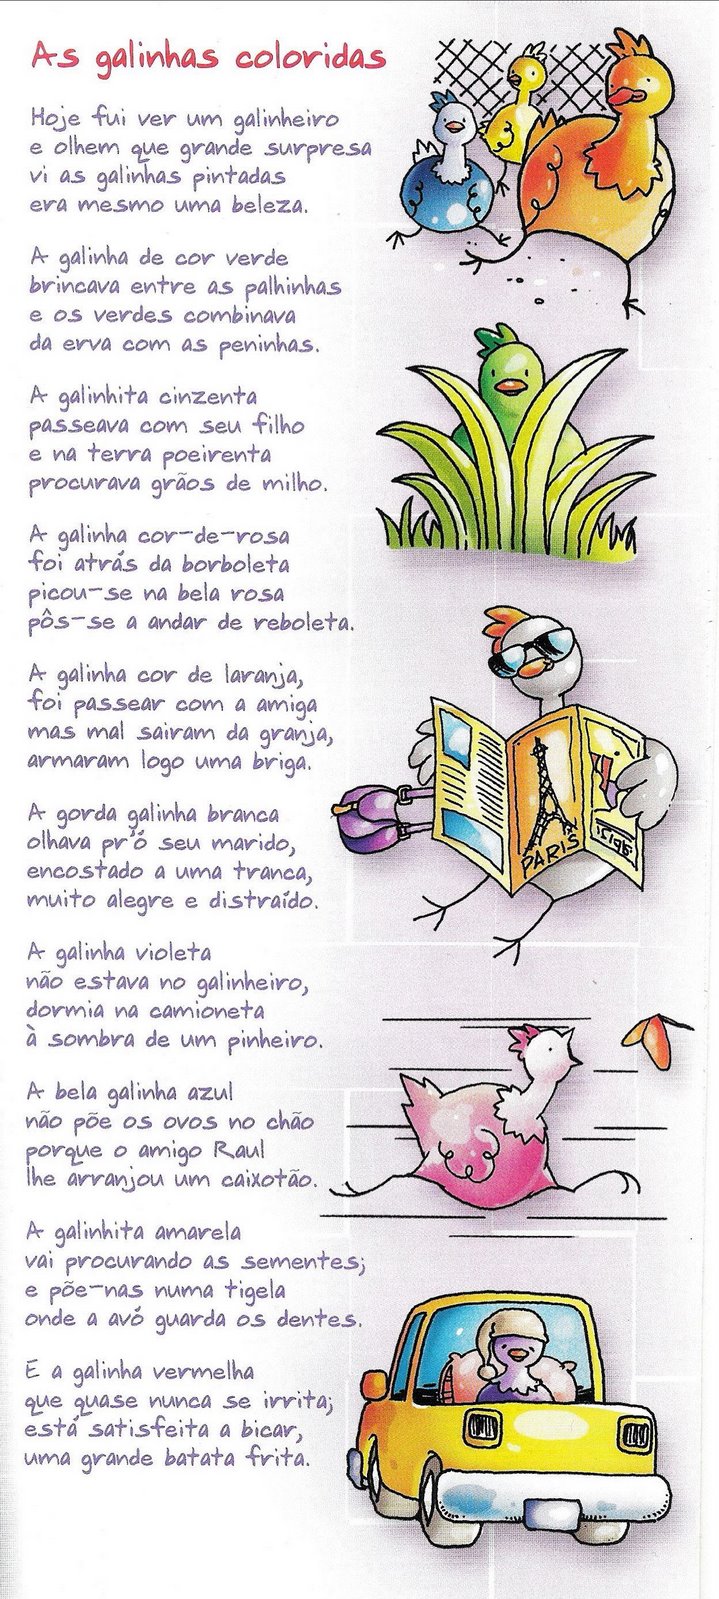 As galinhas coloridas
Hoje fui ver um galinheiro
e olhem que grande surpresa
vi as galinhas pintadas
era mesmo uma beleza.
A galinha de cor verde
brincava entre as palhinhas
e os verdes combinava
da erva com as peninhas.
A galinhita cinzenta
passeava com seu filho
e na terra poeirenta
procurava grãos de milho.
A galinha cor-de-rosa
foi atrás da borboleta
picou-se na bela rosa
pôs-se a andar de reboleta.
A galinha cor de laranja,
foi passear com a amiga
mas mal sairam da granja,
armaram logo uma briga.
A gorda galinha branca
olhava pr'ó seu marido,
encostado a uma tranca,
muito alegre e distraído.
A galinha violeta
não estava no galinheiro,
dormia na camioneta
à sombra de um pinheiro.
A bela galinha azul
não põe os ovos no chão
porque o amigo Raul
lhe arranjou um caixotão.
A galinhita amarela
vai procurando as sementes;
e põe-nas numa tigela
onde a avó guarda os dentes.
E a galinha vermelha
que quase nunca se irrita;
está satisfeita a bicar,
uma grande batata frita.
PARIS